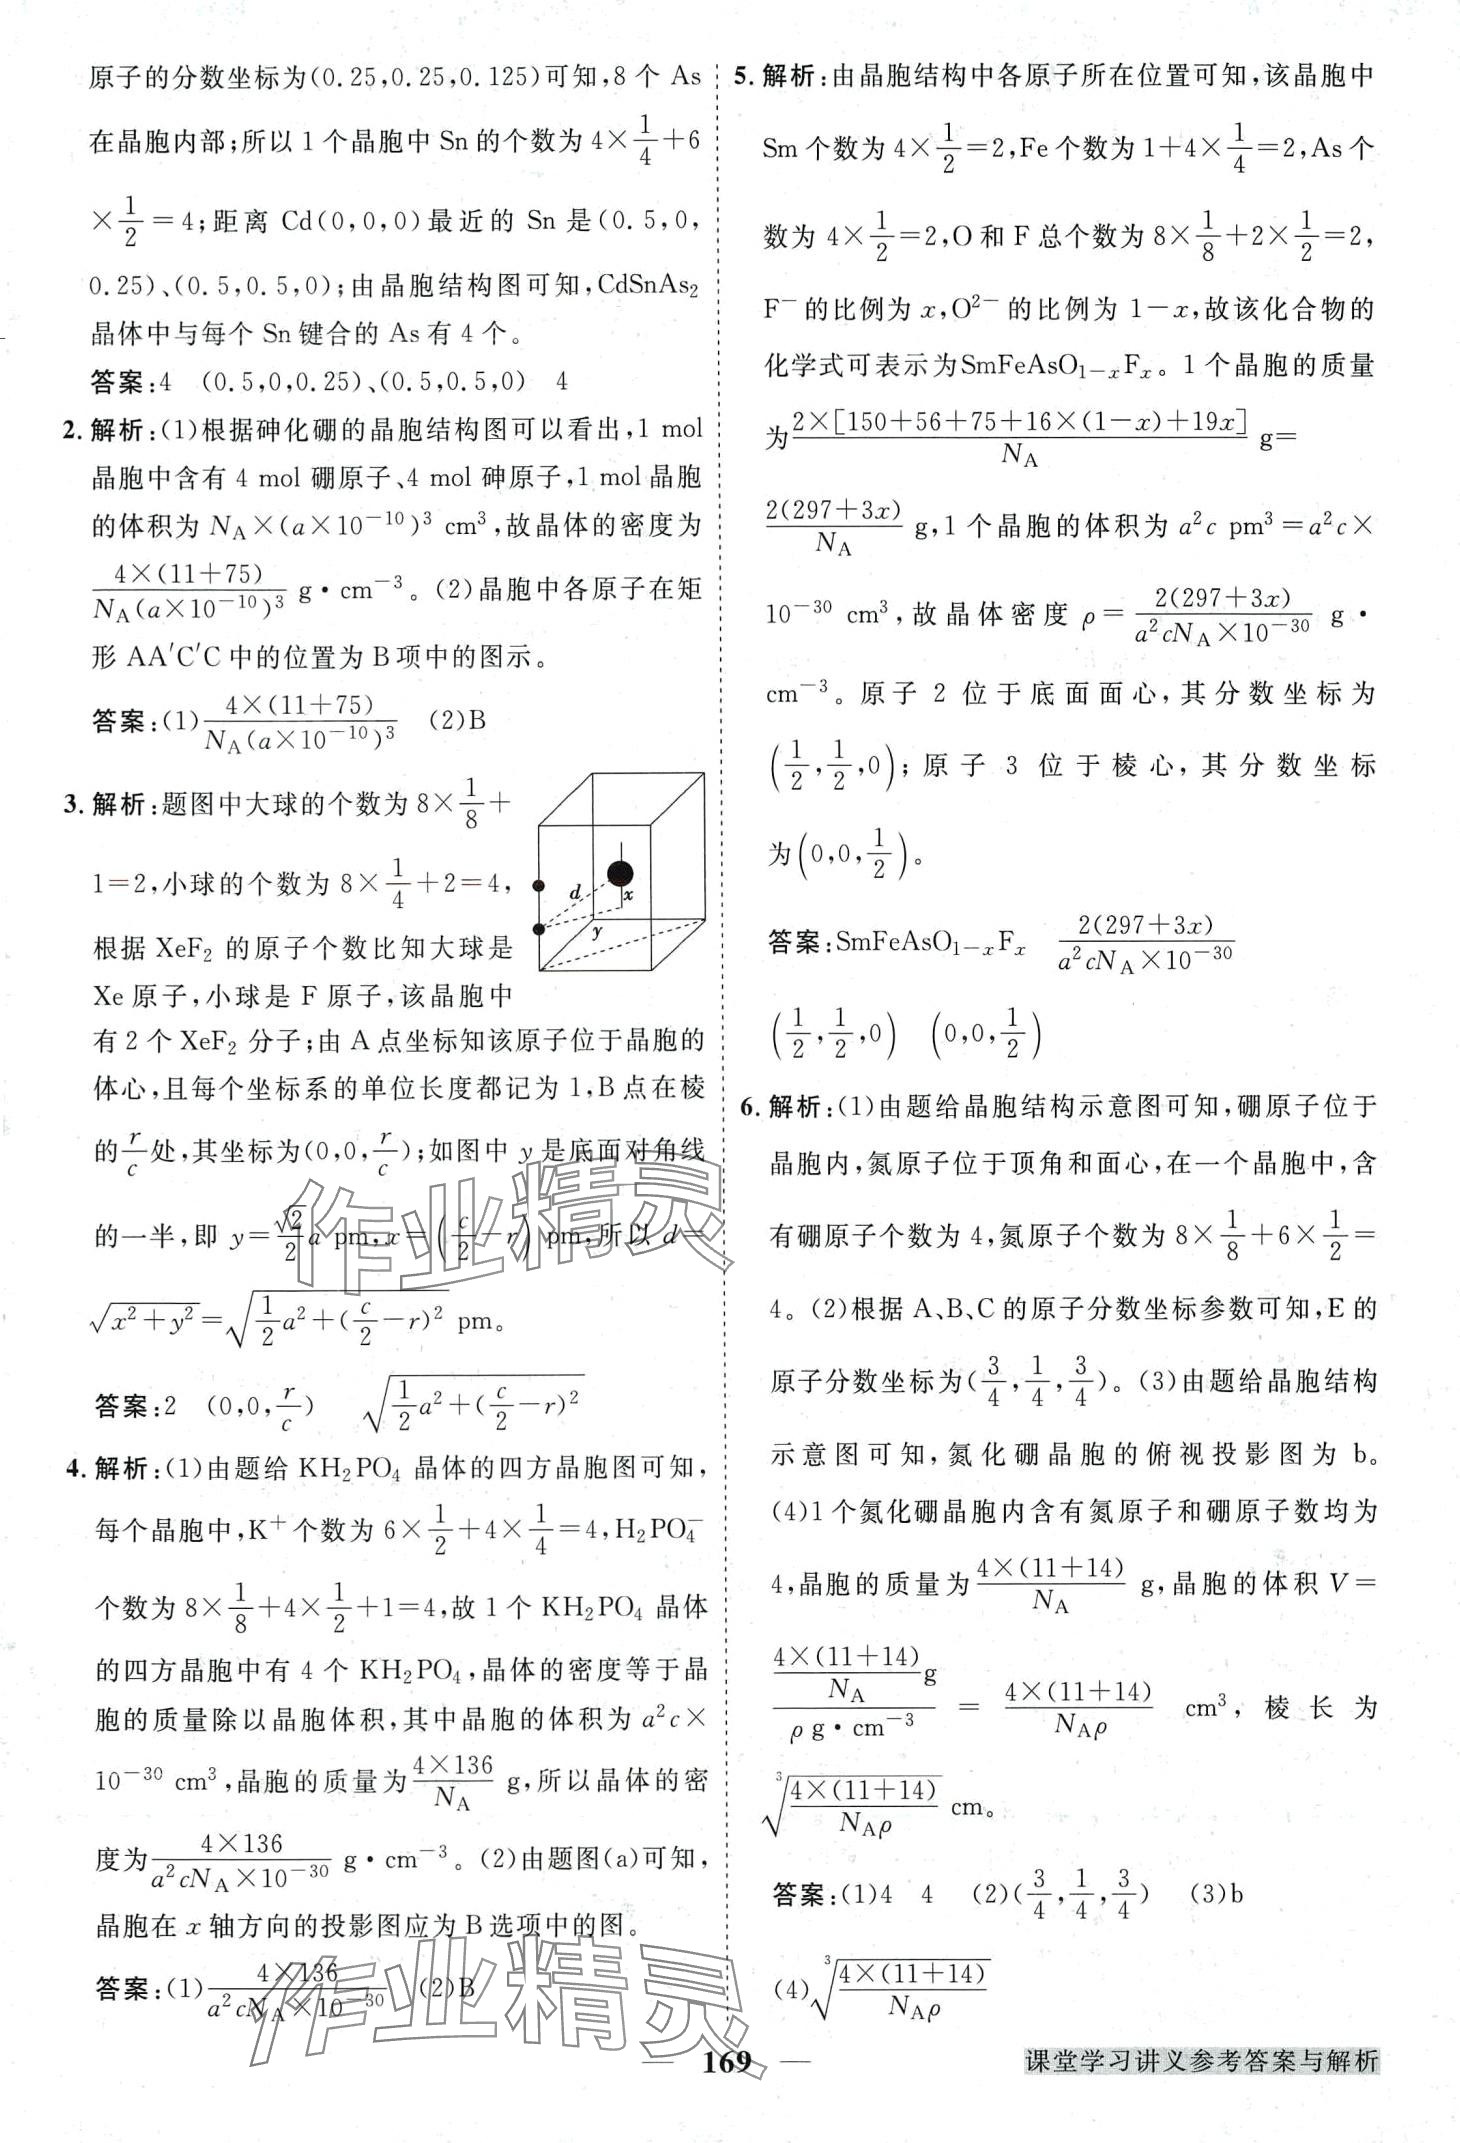 原子的分数坐标为(0.25,0.25,0.125)可知,8个As
在晶胞内部;所以1个晶胞中Sn的个数为4×1/4+6
×1/2=4;距离Cd(0,0,0)最近的Sn是(0.5,0,
0.25)、(0.5,0.5,0);由晶胞结构图可知,CdSnAs₂
晶体中与每个Sn键合的As有4个。
答案:4 (0.5,0,0.25)、(0.5,0.5,0) 4
2.解析:(1)根据砷化硼的晶胞结构图可以看出,1 mol
晶胞中含有4 mol硼原子、4 mol砷原子,1 mol晶胞
的体积为N_A×(a×10⁻¹⁰)³ cm³,故晶体的密度为
4×(11+75)/N_A(a×10⁻¹⁰)³ g·cm⁻³。(2)晶胞中各原子在矩
形AA′C′C中的位置为B项中的图示。
答案:(1)4×(11+75)/N_A(a×10⁻¹⁰)³ (2)B
3.解析:题图中大球的个数为8×1/8+
1=2,小球的个数为8×1/4+2=4,
根据XeF₂的原子个数比知大球是
Xe原子,小球是F原子,该晶胞中
d
x
y
有2个XeF₂分子;由A点坐标知该原子位于晶胞的
体心,且每个坐标系的单位长度都记为1,B点在棱
的r/c处,其坐标为(0,0,r/c);如图中y是底面对角线
的一半,即y=√2/2 a pm,x=(c/2−r) pm,所以d=
√(x²+y²)=√(1/2 a²+(c/2−r)²) pm。
答案:2 (0,0,r/c) √(1/2 a²+(c/2−r)²)
4.解析:(1)由题给KH₂PO₄晶体的四方晶胞图可知,
每个晶胞中,K⁺个数为6×1/2+4×1/4=4,H₂PO₄⁻
个数为8×1/8+4×1/2+1=4,故1个KH₂PO₄晶体
的四方晶胞中有4个KH₂PO₄,晶体的密度等于晶
胞的质量除以晶胞体积,其中晶胞的体积为a²c×
10⁻³⁰ cm³,晶胞的质量为4×136/N_A g,所以晶体的密
度为4×136/a²cN_A×10⁻³⁰ g·cm⁻³。(2)由题图(a)可知,
晶胞在x轴方向的投影图应为B选项中的图。
答案:(1)4×136/a²cN_A×10⁻³⁰ (2)B
5.解析:由晶胞结构中各原子所在位置可知,该晶胞中
Sm个数为4×1/2=2,Fe个数为1+4×1/4=2,As个
数为4×1/2=2,O和F总个数为8×1/8+2×1/2=2,
F⁻的比例为x,O²⁻的比例为1−x,故该化合物的
化学式可表示为SmFeAsO₁₋ₓFₓ。1个晶胞的质量
为2×[150+56+75+16×(1−x)+19x]/N_A g=
2(297+3x)/N_A g,1个晶胞的体积为a²c pm³=a²c×
10⁻³⁰ cm³,故晶体密度ρ=2(297+3x)/a²cN_A×10⁻³⁰ g·
cm⁻³。原子2位于底面面心,其分数坐标为
(1/2,1/2,0);原子3位于棱心,其分数坐标
为(0,0,1/2)。
答案:SmFeAsO₁₋ₓFₓ 2(297+3x)/a²cN_A×10⁻³⁰
(1/2,1/2,0) (0,0,1/2)
6.解析:(1)由题给晶胞结构示意图可知,硼原子位于
晶胞内,氮原子位于顶角和面心,在一个晶胞中,含
有硼原子个数为4,氮原子个数为8×1/8+6×1/2=
4。(2)根据A、B、C的原子分数坐标参数可知,E的
原子分数坐标为(3/4,1/4,3/4)。(3)由题给晶胞结构
示意图可知,氮化硼晶胞的俯视投影图为b。
(4)1个氮化硼晶胞内含有氮原子和硼原子数均为
4,晶胞的质量为4×(11+14)/N_A g,晶胞的体积V=
(4×(11+14)/N_A g)/(ρ g·cm⁻³)=4×(11+14)/N_Aρ cm³,棱长为
∛(4×(11+14)/N_Aρ) cm。
答案:(1)4 4 (2)(3/4,1/4,3/4) (3)b
(4)∛(4×(11+14)/N_Aρ)
作业精灵
作业精灵
— 169 —
课堂学习讲义参考答案与解析